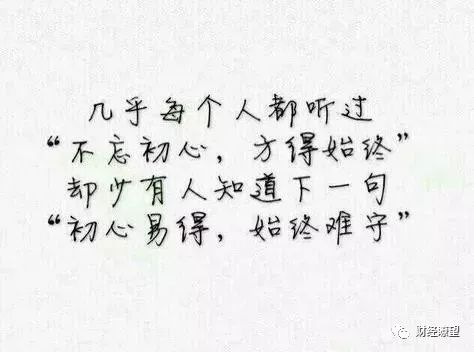 几乎每个人都听过
“不忘初心，方得始终”
却少有人知道下一句
“初心易得，始终难守”
财经瞭望